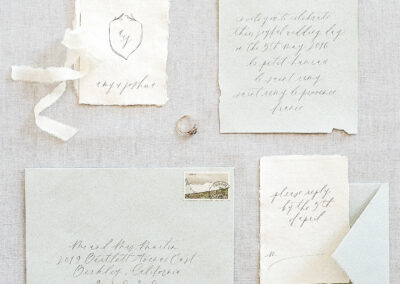 amy & joshua
invite you to celebrate
their joyful wedding day
on the 5th may 2016
le petit hameau
de saint remy
saint remy de provence
france
please reply
by the 5th
of april
M
Mr and Mrs Martin
2019 Bartlett Avenue East
Berkley, California